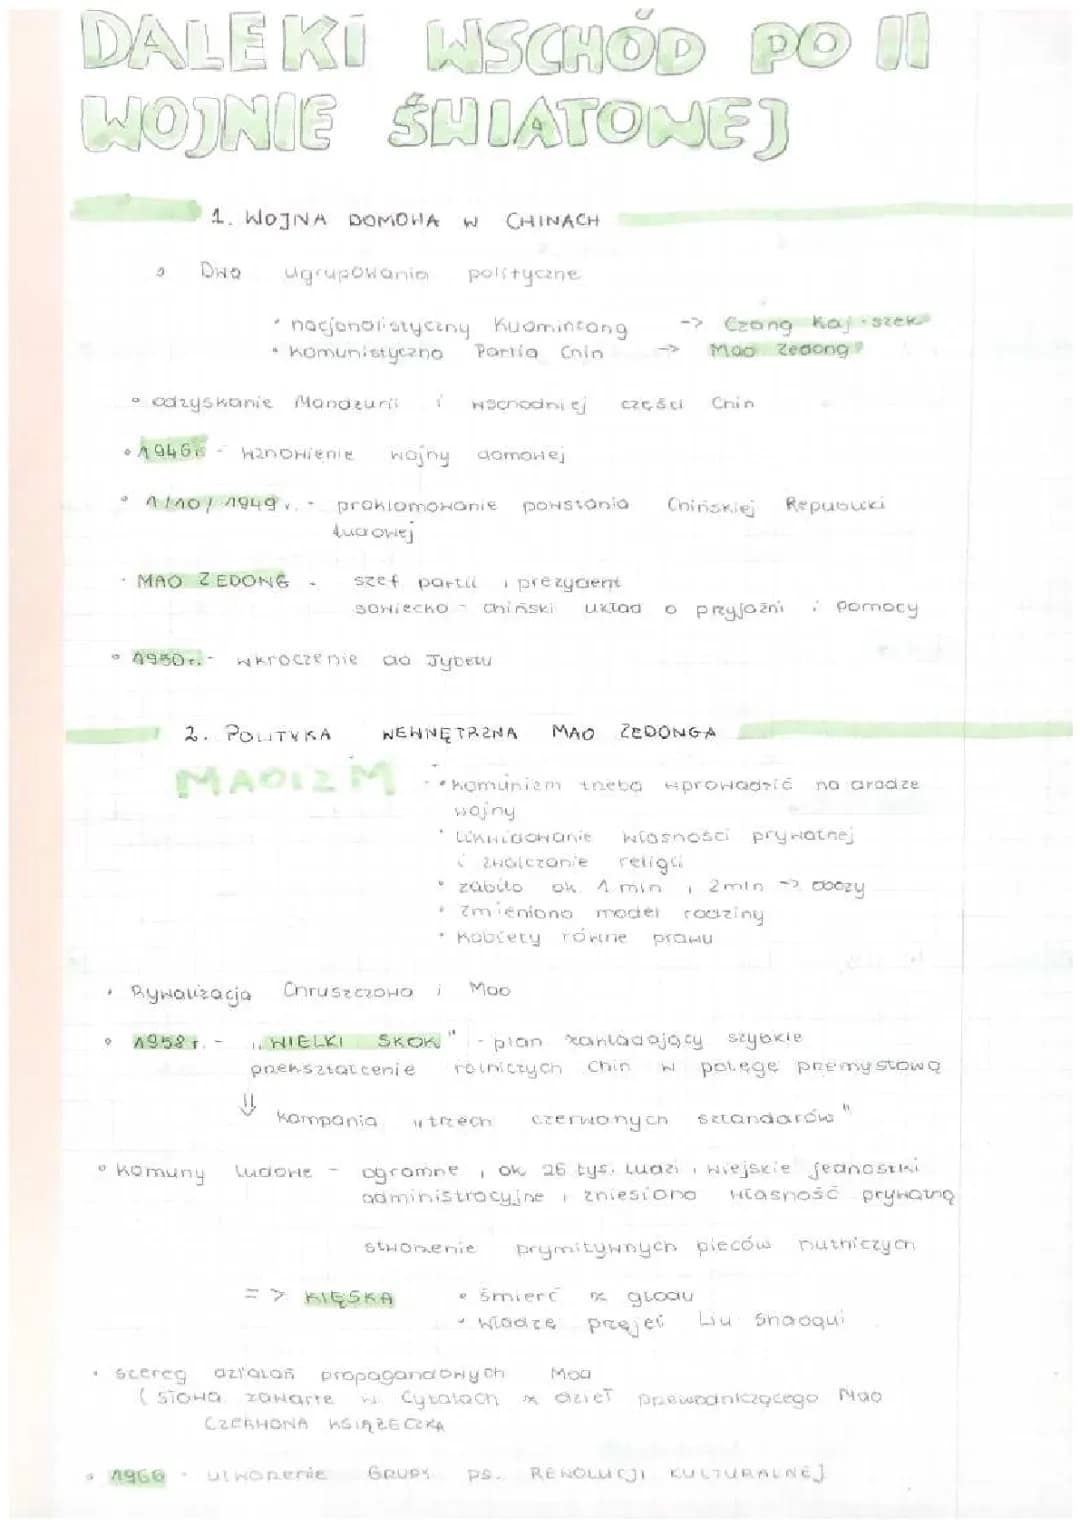 DALEKI WSCHÓD PO II
WOJNIE ŚWIATOWEJ
1. WOJNA DOMOWA W CHINACH
Dwa ugrupowania polityczne
• nacjonalistyczny Kuomintang -> Czang Kaj-szek
• Komunistyczna Partia Chin -> Mao Zedong
• odzyskanie Mandżurii i wschodniej części Chin
• 1946r. - wznowienie wojny domowej
• 1/10/1949r. - proklamowanie powstania Chińskiej Republiki
Ludowej
• MAO ZEDONG - szef partii i prezydent
sowiecko - chiński układ o przyjaźni i pomocy
• 1950r. - wkroczenie do Tybetu
2. POLITYKA WEWNĘTRZNA MAO ZEDONGA
MAOIZM - • komunizm trzeba wprowadzić na drodze
wojny
• likwidowanie własności prywatnej
i zwalczanie religii
• zabito ok 1 mln, 2mln -> obozy
• zmieniono model rodziny
• kobiety równe prawu
• Rywalizacja Chruszczowa i Mao
• 1958r. - "WIELKI SKOK" - plan zakładający szybkie
przekształcenie rolniczych Chin w potęgę przemysłową
⇓ kampania "trzech czerwonych sztandarów"
• Komuny ludowe - ogromne, ok 26 tys. ludzi, wiejskie jednostki
administracyjne, zniesiono własność prywatną
stworzenie prymitywnych pieców hutniczych
=> KLĘSKA • śmierć z głodu
• władzę przejął Liu Shaoqui
• szereg działań propagandowych Mao
(słowa zawarte w Cytatach z dzieł Przewodniczącego Mao
CZERWONA KSIĄŻECZKA
• 1966 - utworzenie GRUPY ps. REWOLUCJI KULTURALNEJ